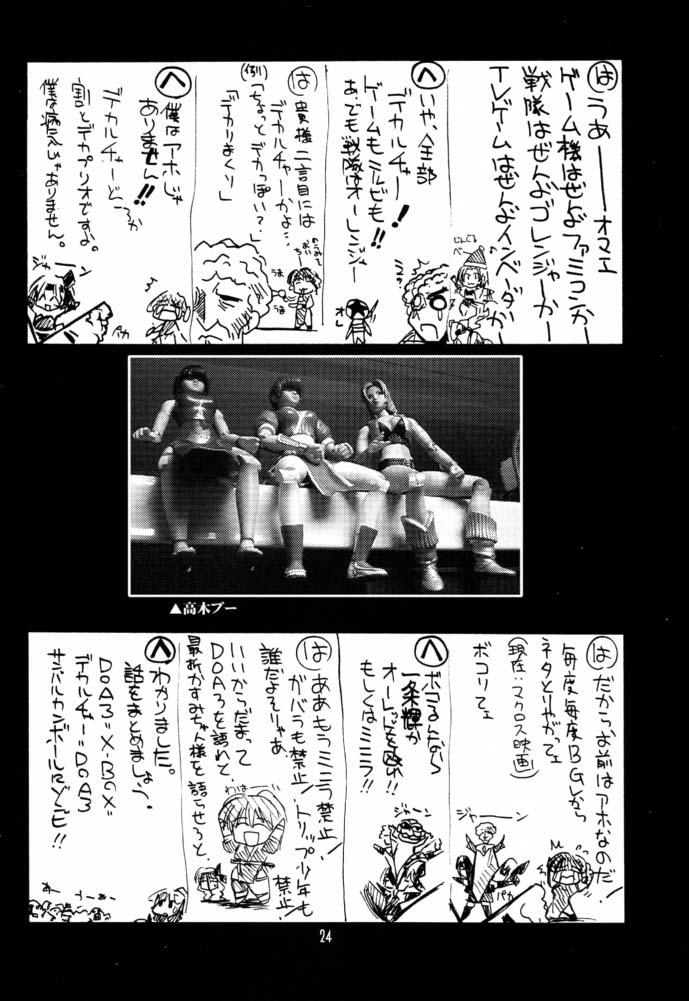 は
うあーーオマエ
ゲーム機はぜんぶファミコンかー
戦隊はぜんぶゴレンジャーかー
テレゲームはぜんぶインベーダーかー
じんぐる
べー
へ
いや、全部
デカルチャー!
ゲームもミルビも!!
あ、でも戦隊はオーレンジャー
オレ
は
貴様二言目には
デカルチャーかよ…
(例)「ちょっとデカっぽい?」
「デカりまくり」
うま
うま
へ
僕はアホじゃ
ありません!!
デカルチャーどころか
割とデカプリオですよ。
僕は病人じゃありません。
ジャーン
パカ
▲高木ブー
は
だからお前はアホなのだ!
毎度毎度BGMから
ネタとりやがってェ
(現在:マクロス映画)
ボコリてェ
ジャーーン
パカ
へ
ボコるんなら
一条輝か
オーレッドを殴れ!!
もしくはミニラ!!
ジャーン
は
ああもうミニラ禁止!
ガバラも禁止!トリップ少年も禁止!
誰だよそりゃあ
いいからだまって
DOA3を語れて
最新かすみちゃん様を語らせろと
わは
へ
わかりました。
話をまとめましょう。
DOA3=X-BOX=
デカルチャー=DOA3
サンバルカンボールRゾビ!!
うーあー
24